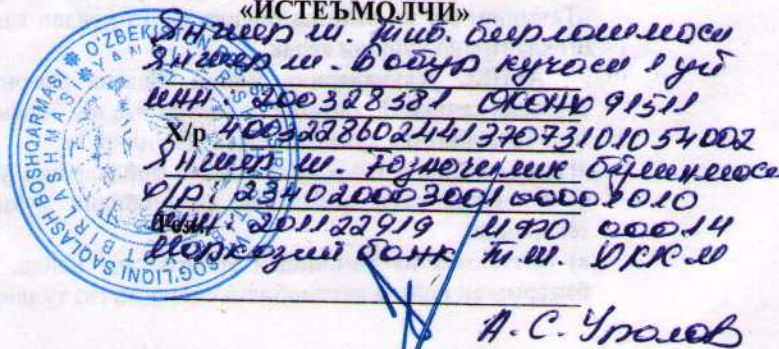 «ИСТЕЪМОЛЧИ»
Янгиер ш. тиб. бирлашмаси
Янгиер ш. Бобур кучаси 1 уй
ИНН: 200328581 ОКОНХ 91511
Х/р 400322860244137073101054002
Янгиер ш. Ғазначилик бўлинмаси
Х/р: 23402000300100001010
ИНН: 201122919 МФО 00014
Марказий банк Т.ш. ХККМ
А.С. Уралов
O'ZBEKISTON
SOG'LIQNI SAQLASH BOSHQARMASI
TIBBIYOT BIRLASHMASI